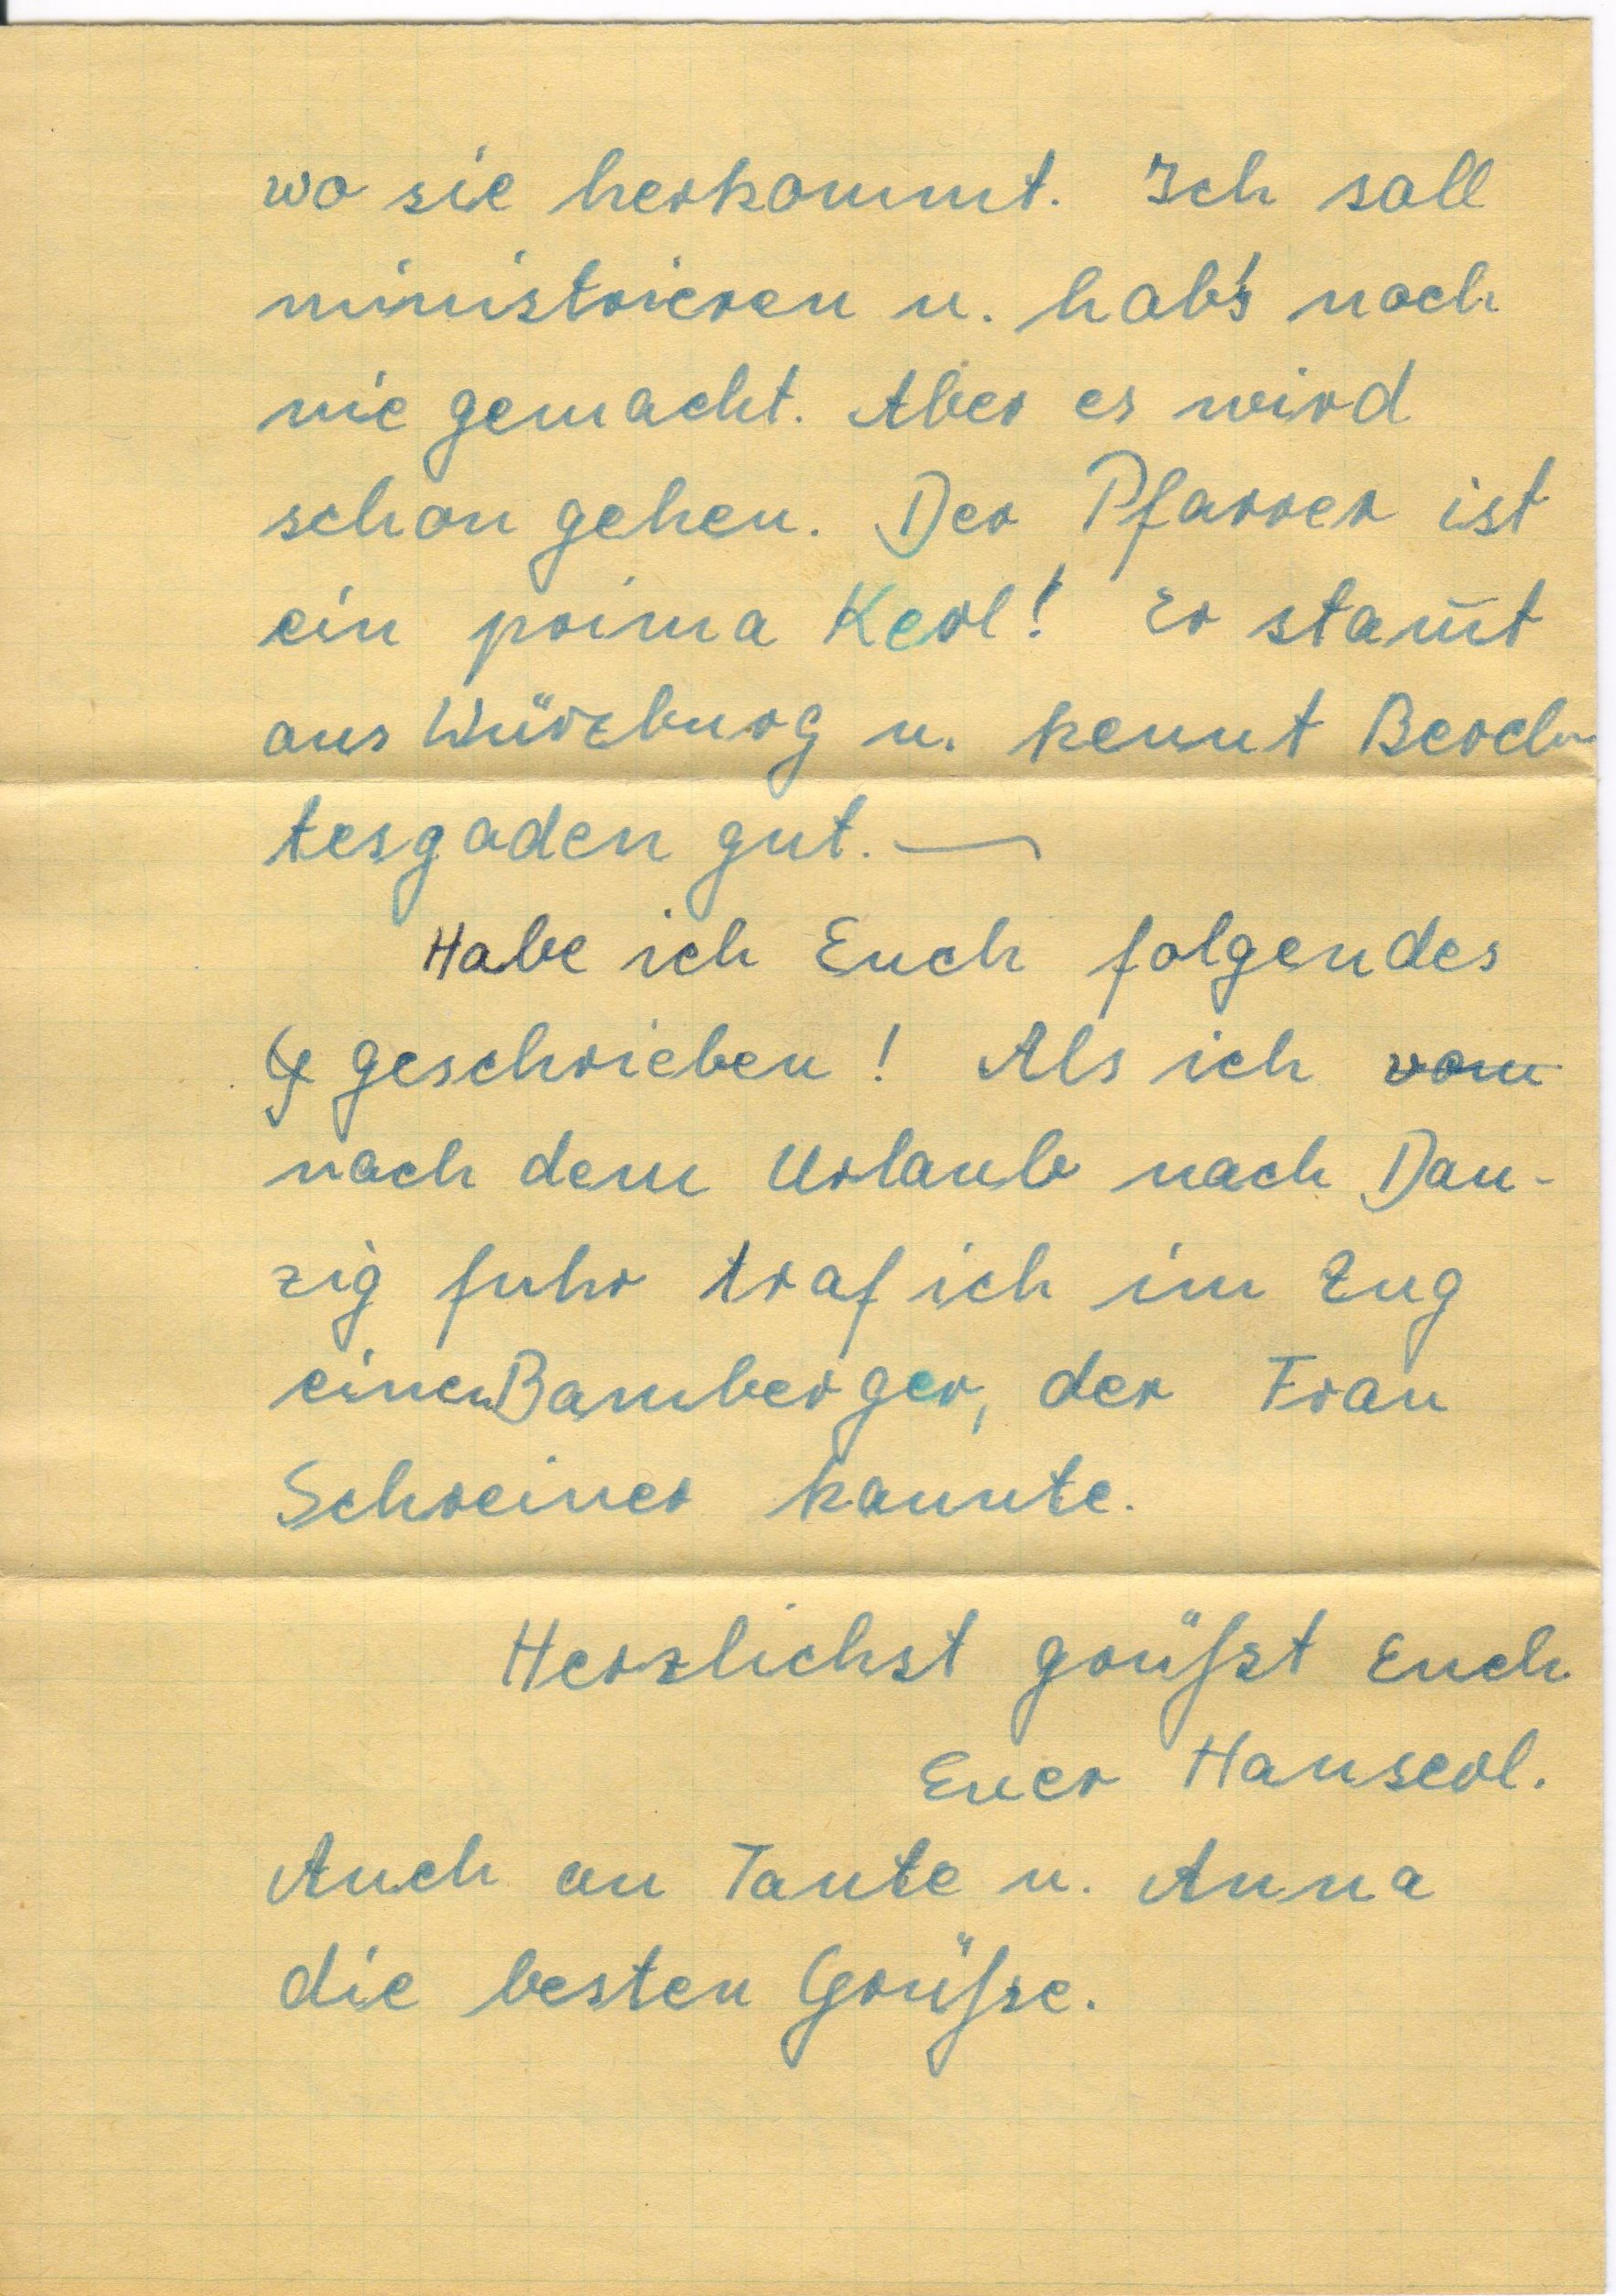 wo sie herkommt. Ich soll
ministrieren u. hab's noch
nie gemacht. Aber es wird
schon gehen. Der Pfarrer ist
ein prima Kerl! Er stam̅t
aus Würzburg u. kennt Berch-
tesgaden gut. —
Habe ich Euch folgendes
geschrieben! Als ich vom
nach dem Urlaub nach Dan-
zig fuhr traf ich im Zug
einen Bamberger, der Frau
Schreiner kannte.
Herzlichst grüßt Euch
Euer Hanserl.
Auch an Tante u. Anna
die besten Grüße.